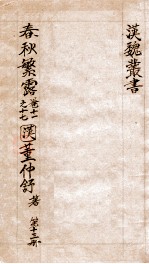 漢魏叢書
春秋繁露 卷十一之十七 漢 董仲舒 著 第十三冊